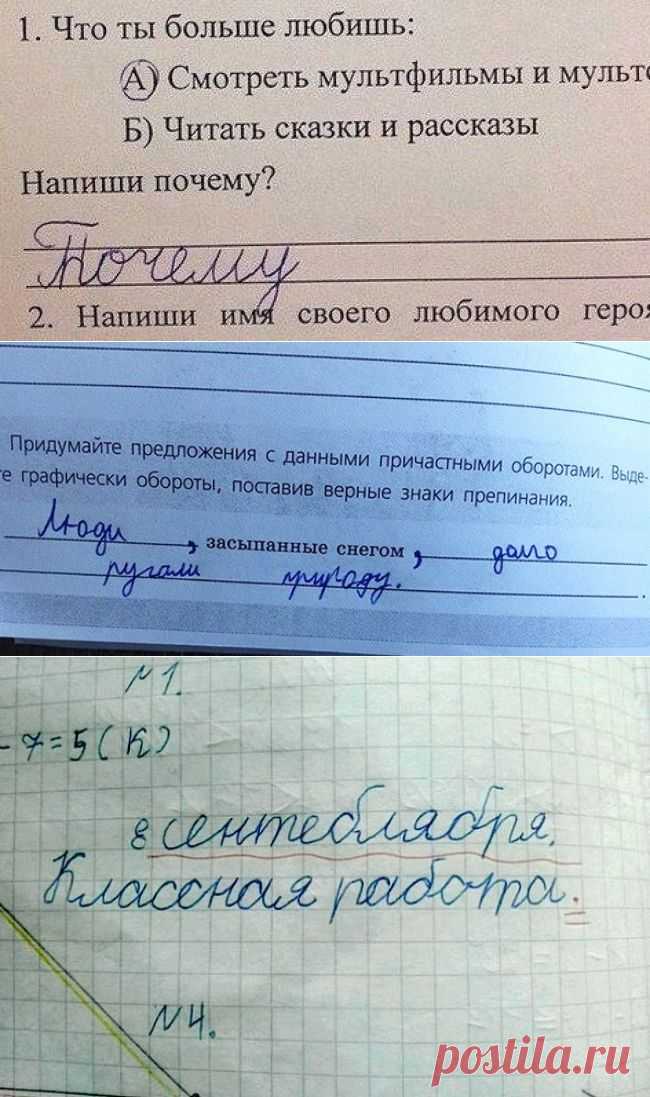 1. Что ты больше любишь:
А) Смотреть мультфильмы и мульт
Б) Читать сказки и рассказы
Напиши почему?
Почему
2. Напиши имя своего любимого геро
Придумайте предложения с данными причастными оборотами. Выде-
те графически обороты, поставив верные знаки препинания.
Люди, засыпанные снегом, долго
ругали природу.
№1.
- 7=5(К)
8 сентеблября.
Классная работа.
№4.
postila.ru